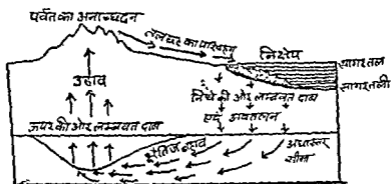 पर्वत का अनाच्छादन
तलछट का परिवहन
निक्षेप
सागर तल
सागर तली
उठाव
निचे की ओर लम्बवत दाब
एवं अवतलन
ऊपर की ओर लम्बवत दाब
क्षैतिज बहाव
अधःस्तर
सीमा